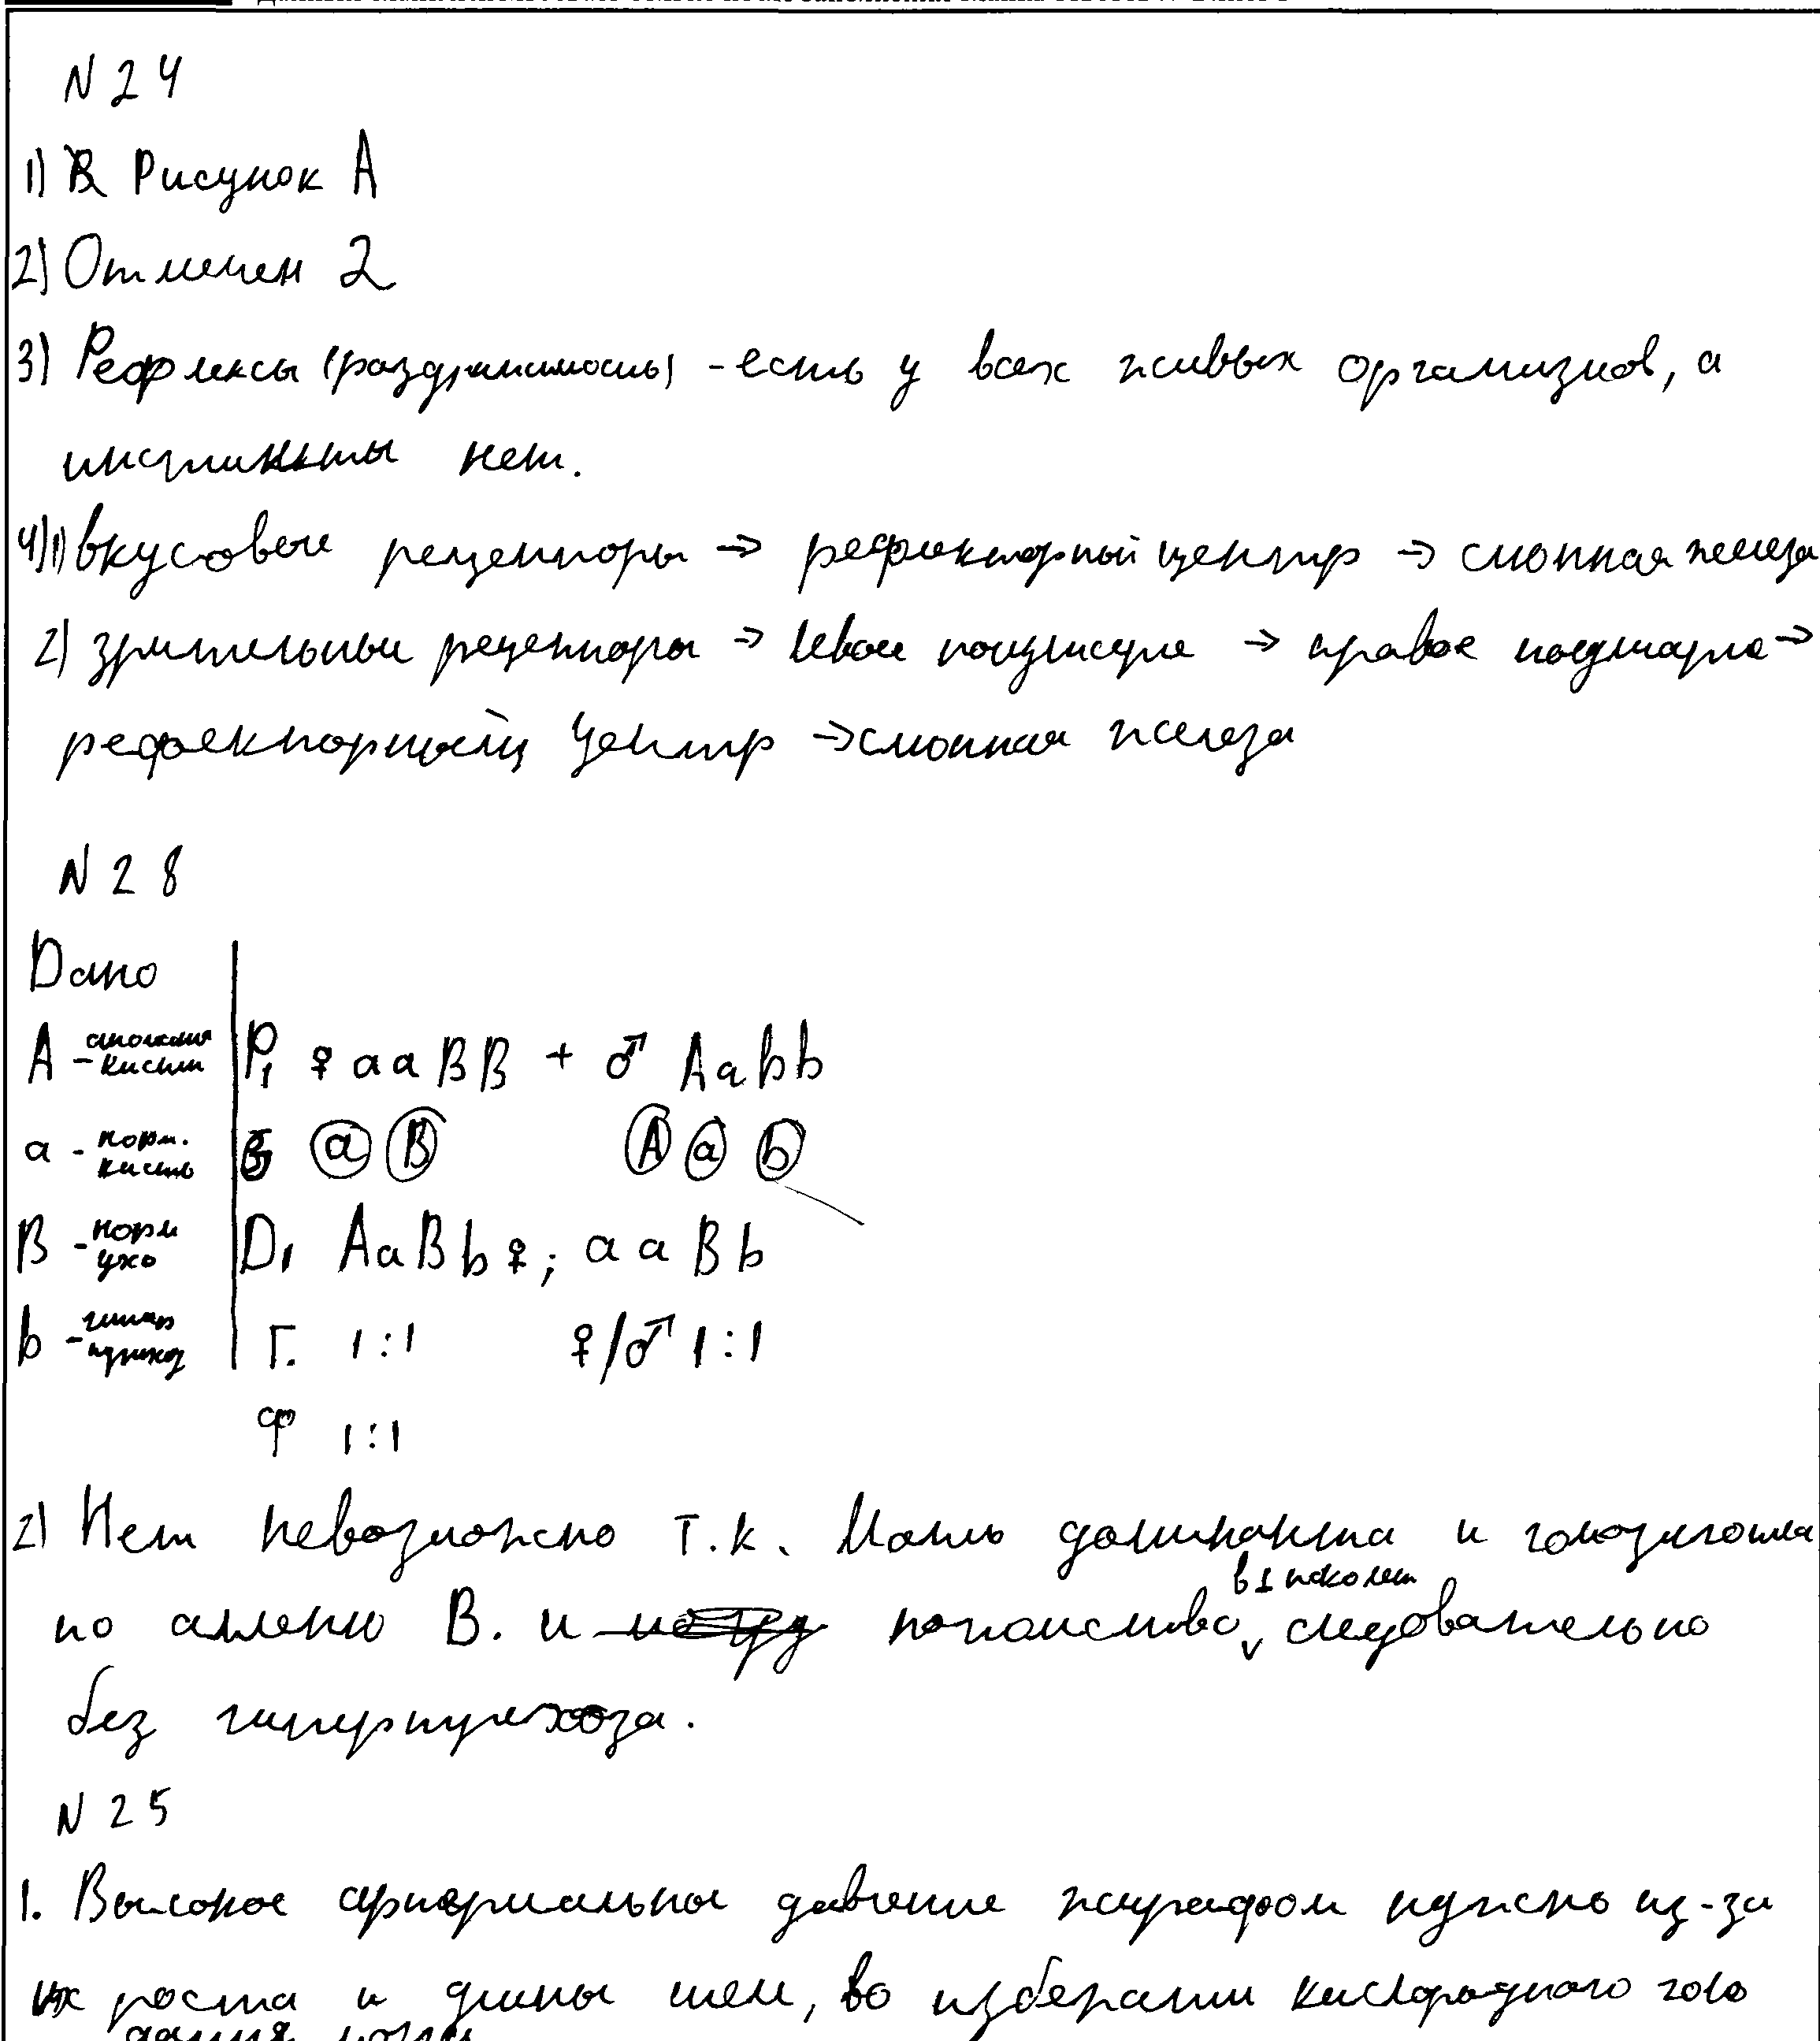 N 24
1) Рисунок А
2) Отмечен 2
3) Рефлексы (раздражимость) - есть у всех живых организмов, а
инстинкты нет.
4) 1) вкусовые рецепторы → рефлекторный центр → слюнная железа
2) зрительные рецепторы → левое полушарие → правое полушарие →
рефлекторный центр → слюнная железа
N 28
Дано
A - аномалия кисти
P1 ♀ aaBB + ♂ Aabb
a - норм. кисть
G (a) (B) (A) (a) (b)
B - норм ухо
D1 AaBb ♀; aaBb
b -
Г. 1:1 ♀/♂ 1:1
Ф 1:1
2) Нет невозможно т.к. Мать доминантна и гомозиготна
по аллелю B. и потомство в 1 поколен следовательно
без
N 25
1. Высокое артериальное давление жирафом нужно из-за
их роста и длины шеи, во избежании кислородного голо